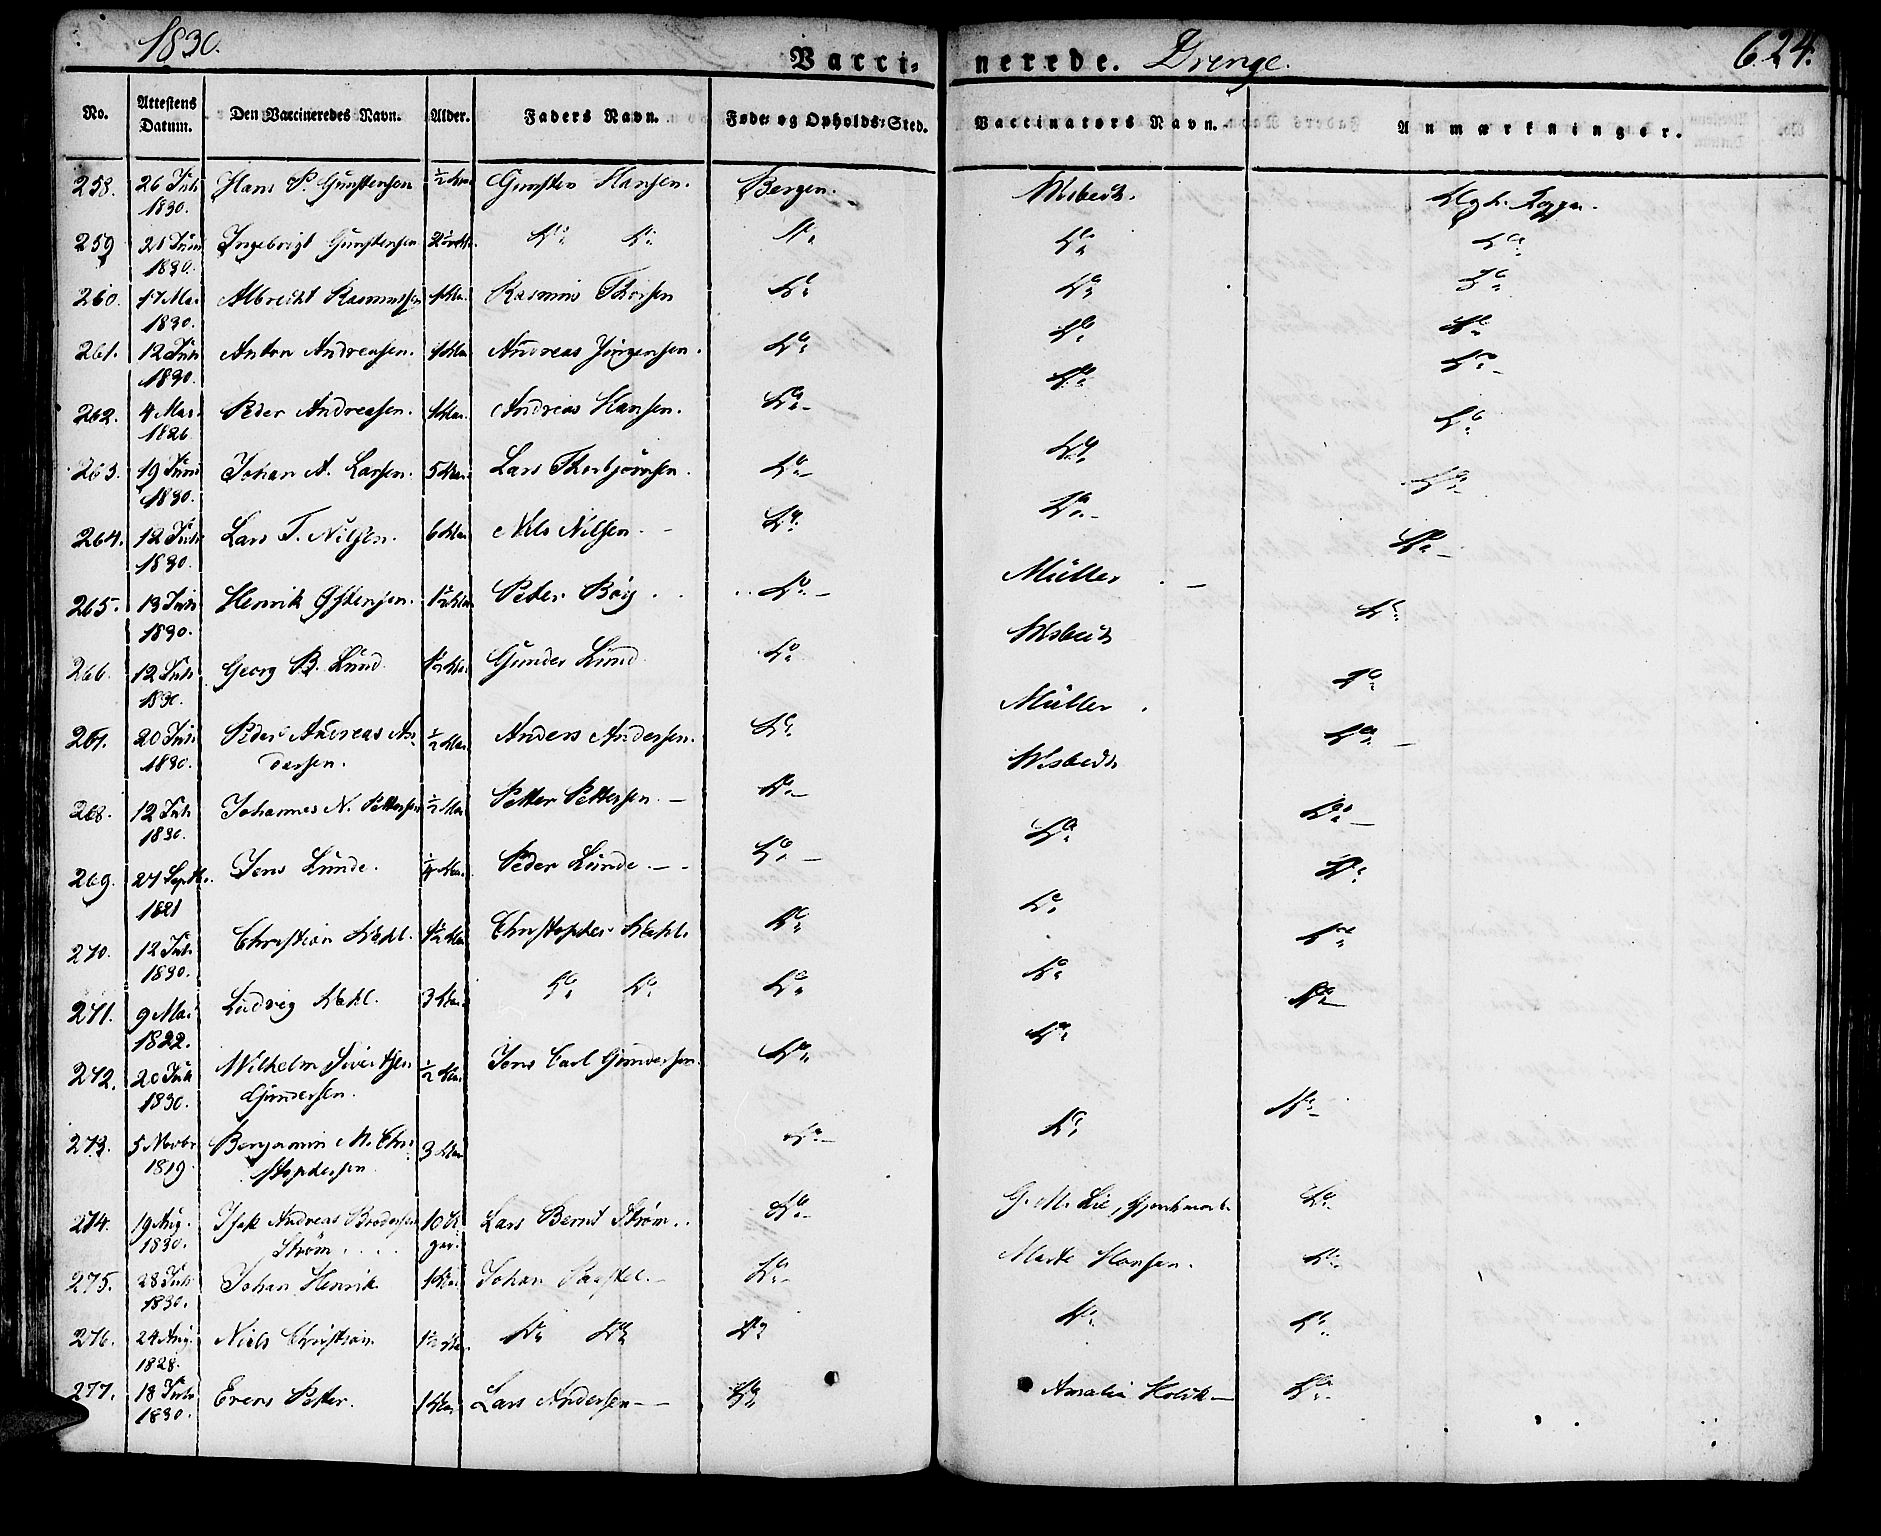 1830.
Vacci-nerede. Drenge.
624.
No. Attestens Datum. Den Vaccineredes Navn. Alder. Faders Navn. Føde- og Opholds-Sted. Vaccinators Navn. Anmærkninger.
258. 26 Juli 1830. Hans P. Gunstensen ½ Gunsten Hansen. Bergen. Wisbech.
259 1830. Ingebrigt Gunstensen do do do do do
260. 17 Mai 1830. Albrecht Rasmussen Rasmus Thorsen do do do
261. 12 Juli 1830. Anton Andreasen. Andreas Jörgensen. do do do
262. 4 Mai 1826 Peder Andreasen. Andreas Hansen. do do do
263. 19 Juni 1830. Johan A. Larsen. 5 Lars Thorbjörnsen. do do do
264. 12 Juli 1830. Lars T. Nilsen. 6 Nils Nilsen. do do do
265. 13 Juli 1830. Henrik Östensen. Peder do Müller do
266. 12 Juli 1830. Georg B. Lund. Gunder Lund do Wisbech do
267. 20 Juli 1830. Peder Andreas Andersen. ½ Anders Andersen. do Müller. do
268. 12 Juli 1830. Johannes N. Pettersen ½ Petter Pettersen. do Wisbech do
269. 27 Septbr. 1821 Jens Lunde. ¼ Peder Lunde do do do
270. 12 Juli 1830. Christian Christopher do do do
271. 9 Mai 1822. Ludvig 3 do do do do do
272. 20 Juli 1830. Wilhelm Sivertsen Gundersen. ½ Jens Carl Gundersen. do do do
273. 5 Novbr 1819. Benjamin M. Christophersen 3 do do do
274. 19 Aug. 1830. Isak Andreas Brodersen Strøm 10 Lars Bernt Strøm. do G. M. Lie, do
275. 28 Juli 1830. Johan Henrik Johan do Marte Hansen. do
276. 24 Aug. 1828. Niels Christian do do do do do
277. 18 Juli 1830. Erens Petter. Lars Andersen do Amalia do